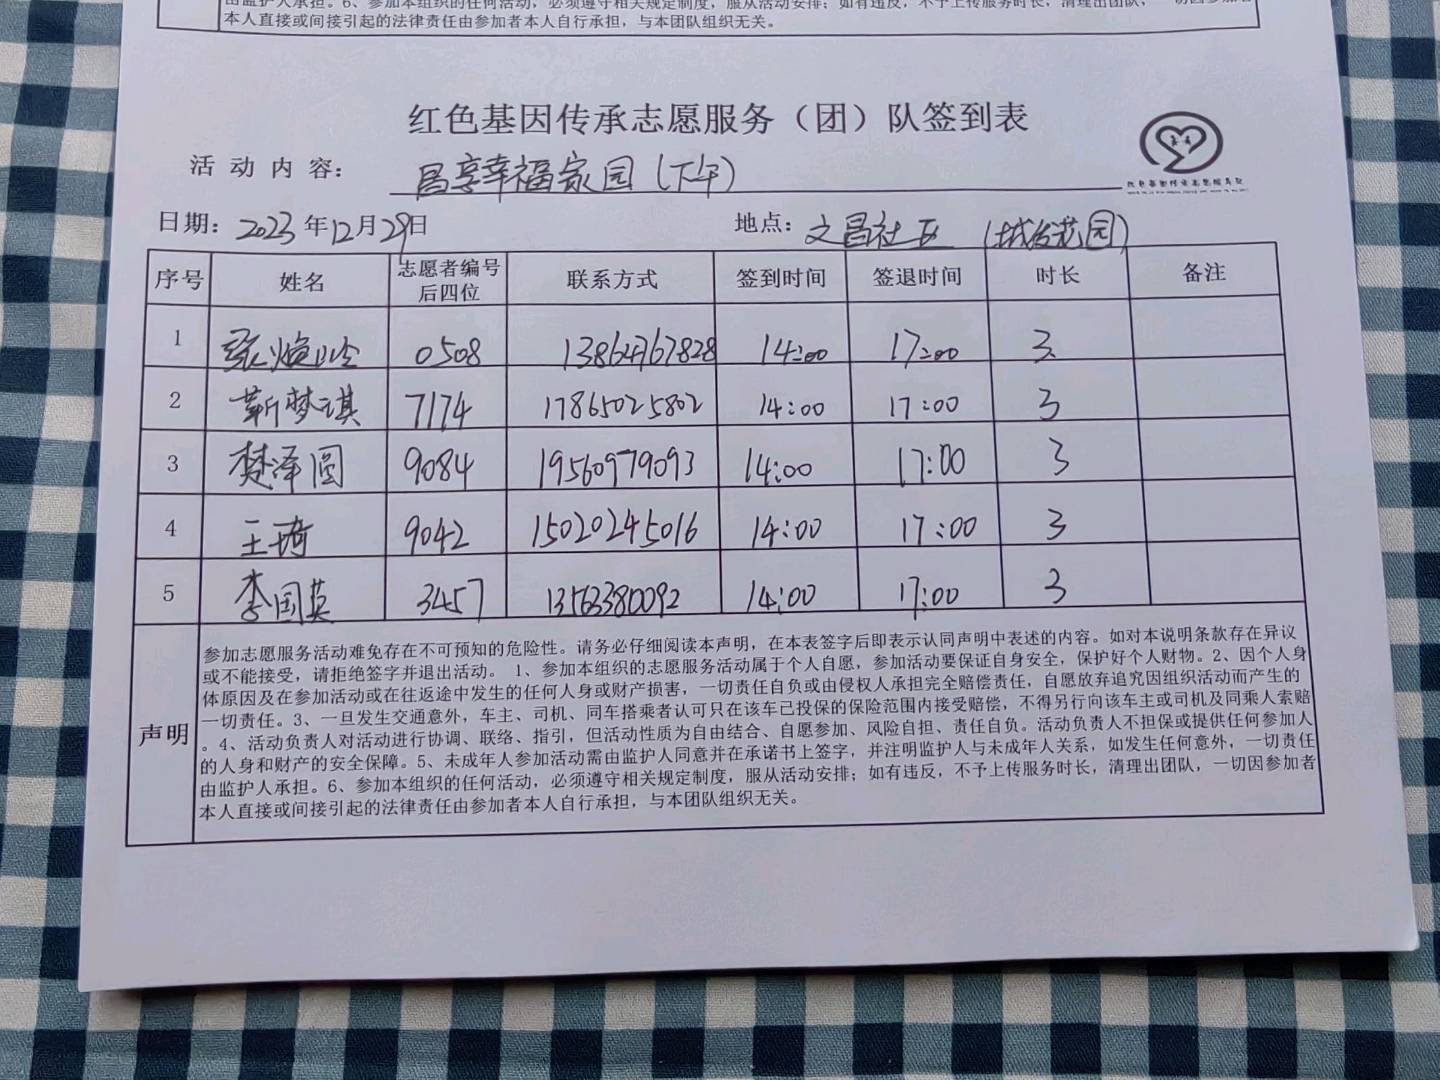 由监护人承担。6、参加本组织的任何活动，必须遵守相关规定制度，服从活动安排；如有违反，不予上传服务时长，清理出团队，一切因参加者
本人直接或间接引起的法律责任由参加者本人自行承担，与本团队组织无关。
红色基因传承志愿服务（团）队签到表
活动内容：昌享幸福家园（下午）
日期：2023年12月29日 地点：文昌社区（城发花园）
序号 姓名 志愿者编号后四位 联系方式 签到时间 签退时间 时长 备注
1 0508 13864767828 14:00 17:00 3
2 靳梦琪 7174 17865025802 14:00 17:00 3
3 樊泽圆 9084 19560979093 14:00 17:00 3
4 王琦 9042 15020245016 14:00 17:00 3
5 李国英 3457 13563380092 14:00 17:00 3
声明
参加志愿服务活动难免存在不可预知的危险性。请务必仔细阅读本声明，在本表签字后即表示认同声明中表述的内容。如对本说明条款存在异议
或不能接受，请拒绝签字并退出活动。 1、参加本组织的志愿服务活动属于个人自愿，参加活动要保证自身安全，保护好个人财物。2、因个人身
体原因及在参加活动或在往返途中发生的任何人身或财产损害，一切责任自负或由侵权人承担完全赔偿责任，自愿放弃追究因组织活动而产生的
一切责任。3、一旦发生交通意外，车主、司机、同车搭乘者认可只在该车已投保的保险范围内接受赔偿，不得另行向该车主或司机及同乘人索赔
。4、活动负责人对活动进行协调、联络、指引，但活动性质为自由结合、自愿参加、风险自担、责任自负。活动负责人不担保或提供任何参加人
的人身和财产的安全保障。5、未成年人参加活动需由监护人同意并在承诺书上签字，并注明监护人与未成年人关系，如发生任何意外，一切责任
由监护人承担。6、参加本组织的任何活动，必须遵守相关规定制度，服从活动安排；如有违反，不予上传服务时长，清理出团队，一切因参加者
本人直接或间接引起的法律责任由参加者本人自行承担，与本团队组织无关。